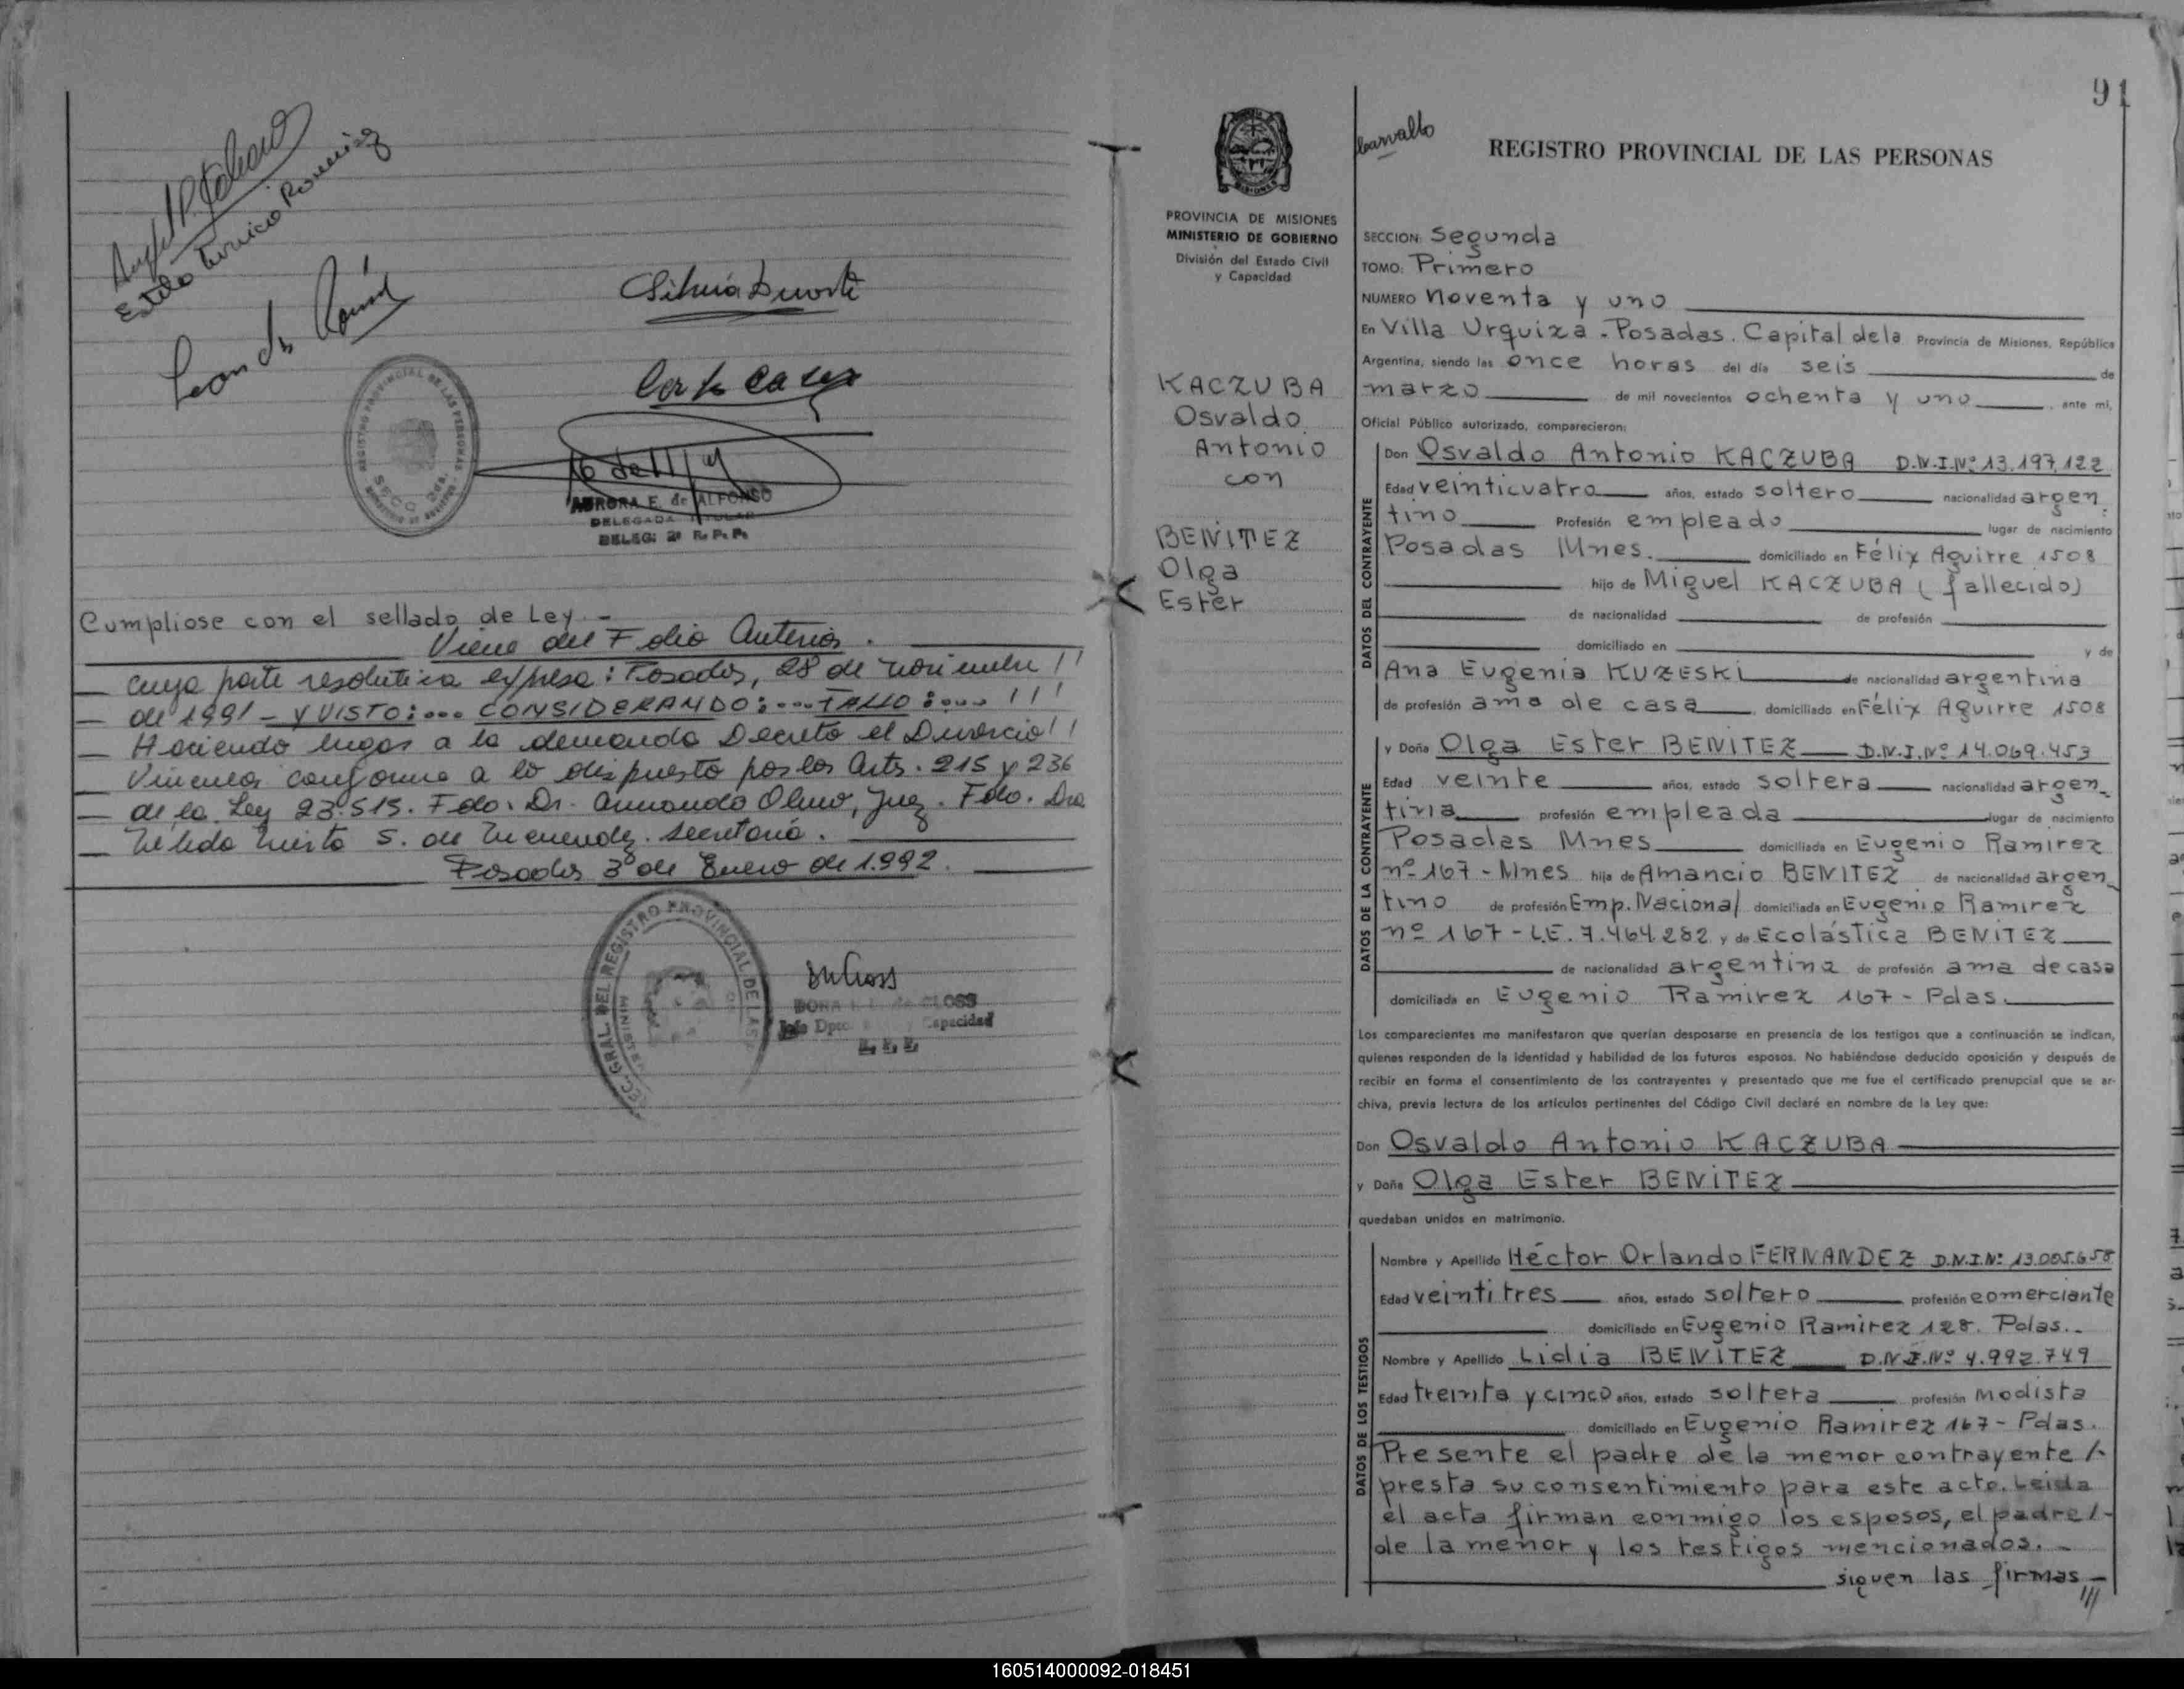 Silvia Duarte
AURORA E. de ALFONSO
DELEGADA TITULAR
DELEG: 2ª R. P. P.
Cumpliose con el sellado de Ley.-
Viene del Folio Anterior.
cuya parte resolutiva expresa: Posadas, 28 de noviembre //
de 1991 - Y VISTO:... CONSIDERANDO:... FALLO:... ///
Haciendo lugar a la demanda Decreto el Divorcio //
Vincular conforme a lo dispuesto por los Arts. 215 y 236
de la Ley 23.515. Fdo. Dr. Armando Olmo, Juez. Fdo. Dra
S. de secretaria.
Posadas 3 de Enero de 1.992.
91
REGISTRO PROVINCIAL DE LAS PERSONAS
PROVINCIA DE MISIONES
MINISTERIO DE GOBIERNO
División del Estado Civil
y Capacidad
KACZUBA
Osvaldo
Antonio
con
BENITEZ
Olga
Ester
SECCION: Segunda
TOMO: Primero
NUMERO Noventa y uno
En Villa Urquiza - Posadas. Capital de la Provincia de Misiones, República
Argentina, siendo las once horas del día seis de
marzo de mil novecientos ochenta y uno, ante mí,
Oficial Público autorizado, comparecieron:
DATOS DEL CONTRAYENTE
Don Osvaldo Antonio KACZUBA D.N.I.Nº 13.197.122
Edad veinticuatro años, estado soltero nacionalidad argen
tino Profesión empleado lugar de nacimiento
Posadas Mnes. domiciliado en Félix Aguirre 1508
hijo de Miguel KACZUBA (fallecido)
de nacionalidad de profesión
domiciliado en y de
Ana Eugenia KUZESKI de nacionalidad argentina
de profesión ama de casa, domiciliado en Félix Aguirre 1508
DATOS DE LA CONTRAYENTE
y Doña Olga Ester BENITEZ D.N.I.Nº 14.069.453
Edad veinte años, estado soltera nacionalidad argen-
tina profesión empleada lugar de nacimiento
Posadas Mnes domiciliada en Eugenio Ramirez
nº 167 - Mnes hija de Amancio BENITEZ de nacionalidad argen-
tino de profesión Emp. Nacional domiciliada en Eugenio Ramirez
nº 167 - L.E. 7.464.282 y de Ecolástica BENITEZ
de nacionalidad argentina de profesión ama de casa
domiciliada en Eugenio Ramirez 167 - Pdas.
Los comparecientes me manifestaron que querían desposarse en presencia de los testigos que a continuación se indican,
quienes responden de la identidad y habilidad de los futuros esposos. No habiéndose deducido oposición y después de
recibir en forma el consentimiento de los contrayentes y presentado que me fue el certificado prenupcial que se ar-
chiva, previa lectura de los artículos pertinentes del Código Civil declaré en nombre de la Ley que:
Don Osvaldo Antonio KACZUBA
y Doña Olga Ester BENITEZ
quedaban unidos en matrimonio.
DATOS DE LOS TESTIGOS
Nombre y Apellido Héctor Orlando FERNANDEZ D.N.I.Nº 13.005.658
Edad veintitres años, estado soltero profesión comerciante
domiciliado en Eugenio Ramirez 128. Pdas.-
Nombre y Apellido Lidia BENITEZ D.N.I.Nº 4.992.749
Edad treinta y cinco años, estado soltera profesión Modista
domiciliado en Eugenio Ramirez 167 - Pdas.
Presente el padre de la menor contrayente /-
presta su consentimiento para este acto. Leída
el acta firman conmigo los esposos, el padre /-
de la menor y los testigos mencionados.-
siguen las firmas -
///
160514000092-018451